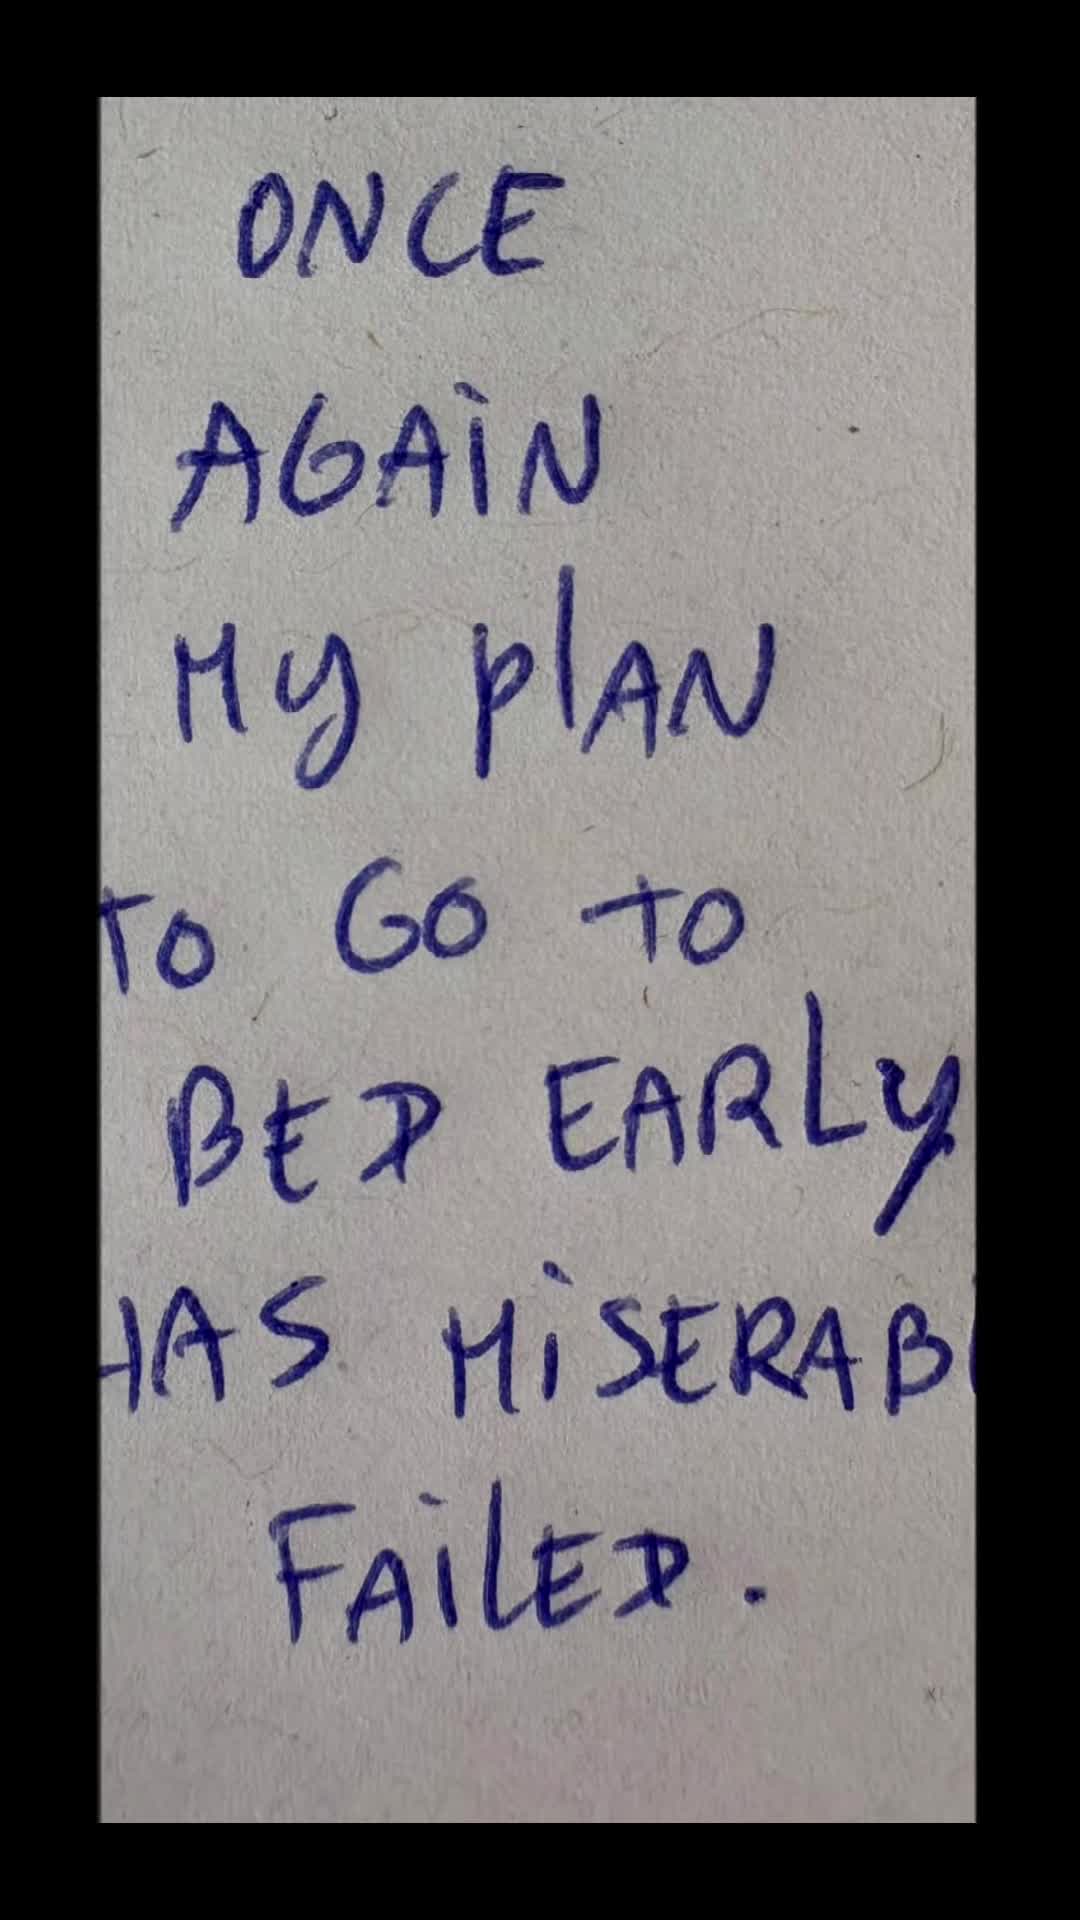 ONCE
AGAiN
My plAN
TO GO TO
BED EARLy
HAS MiSERAB
FAilED.